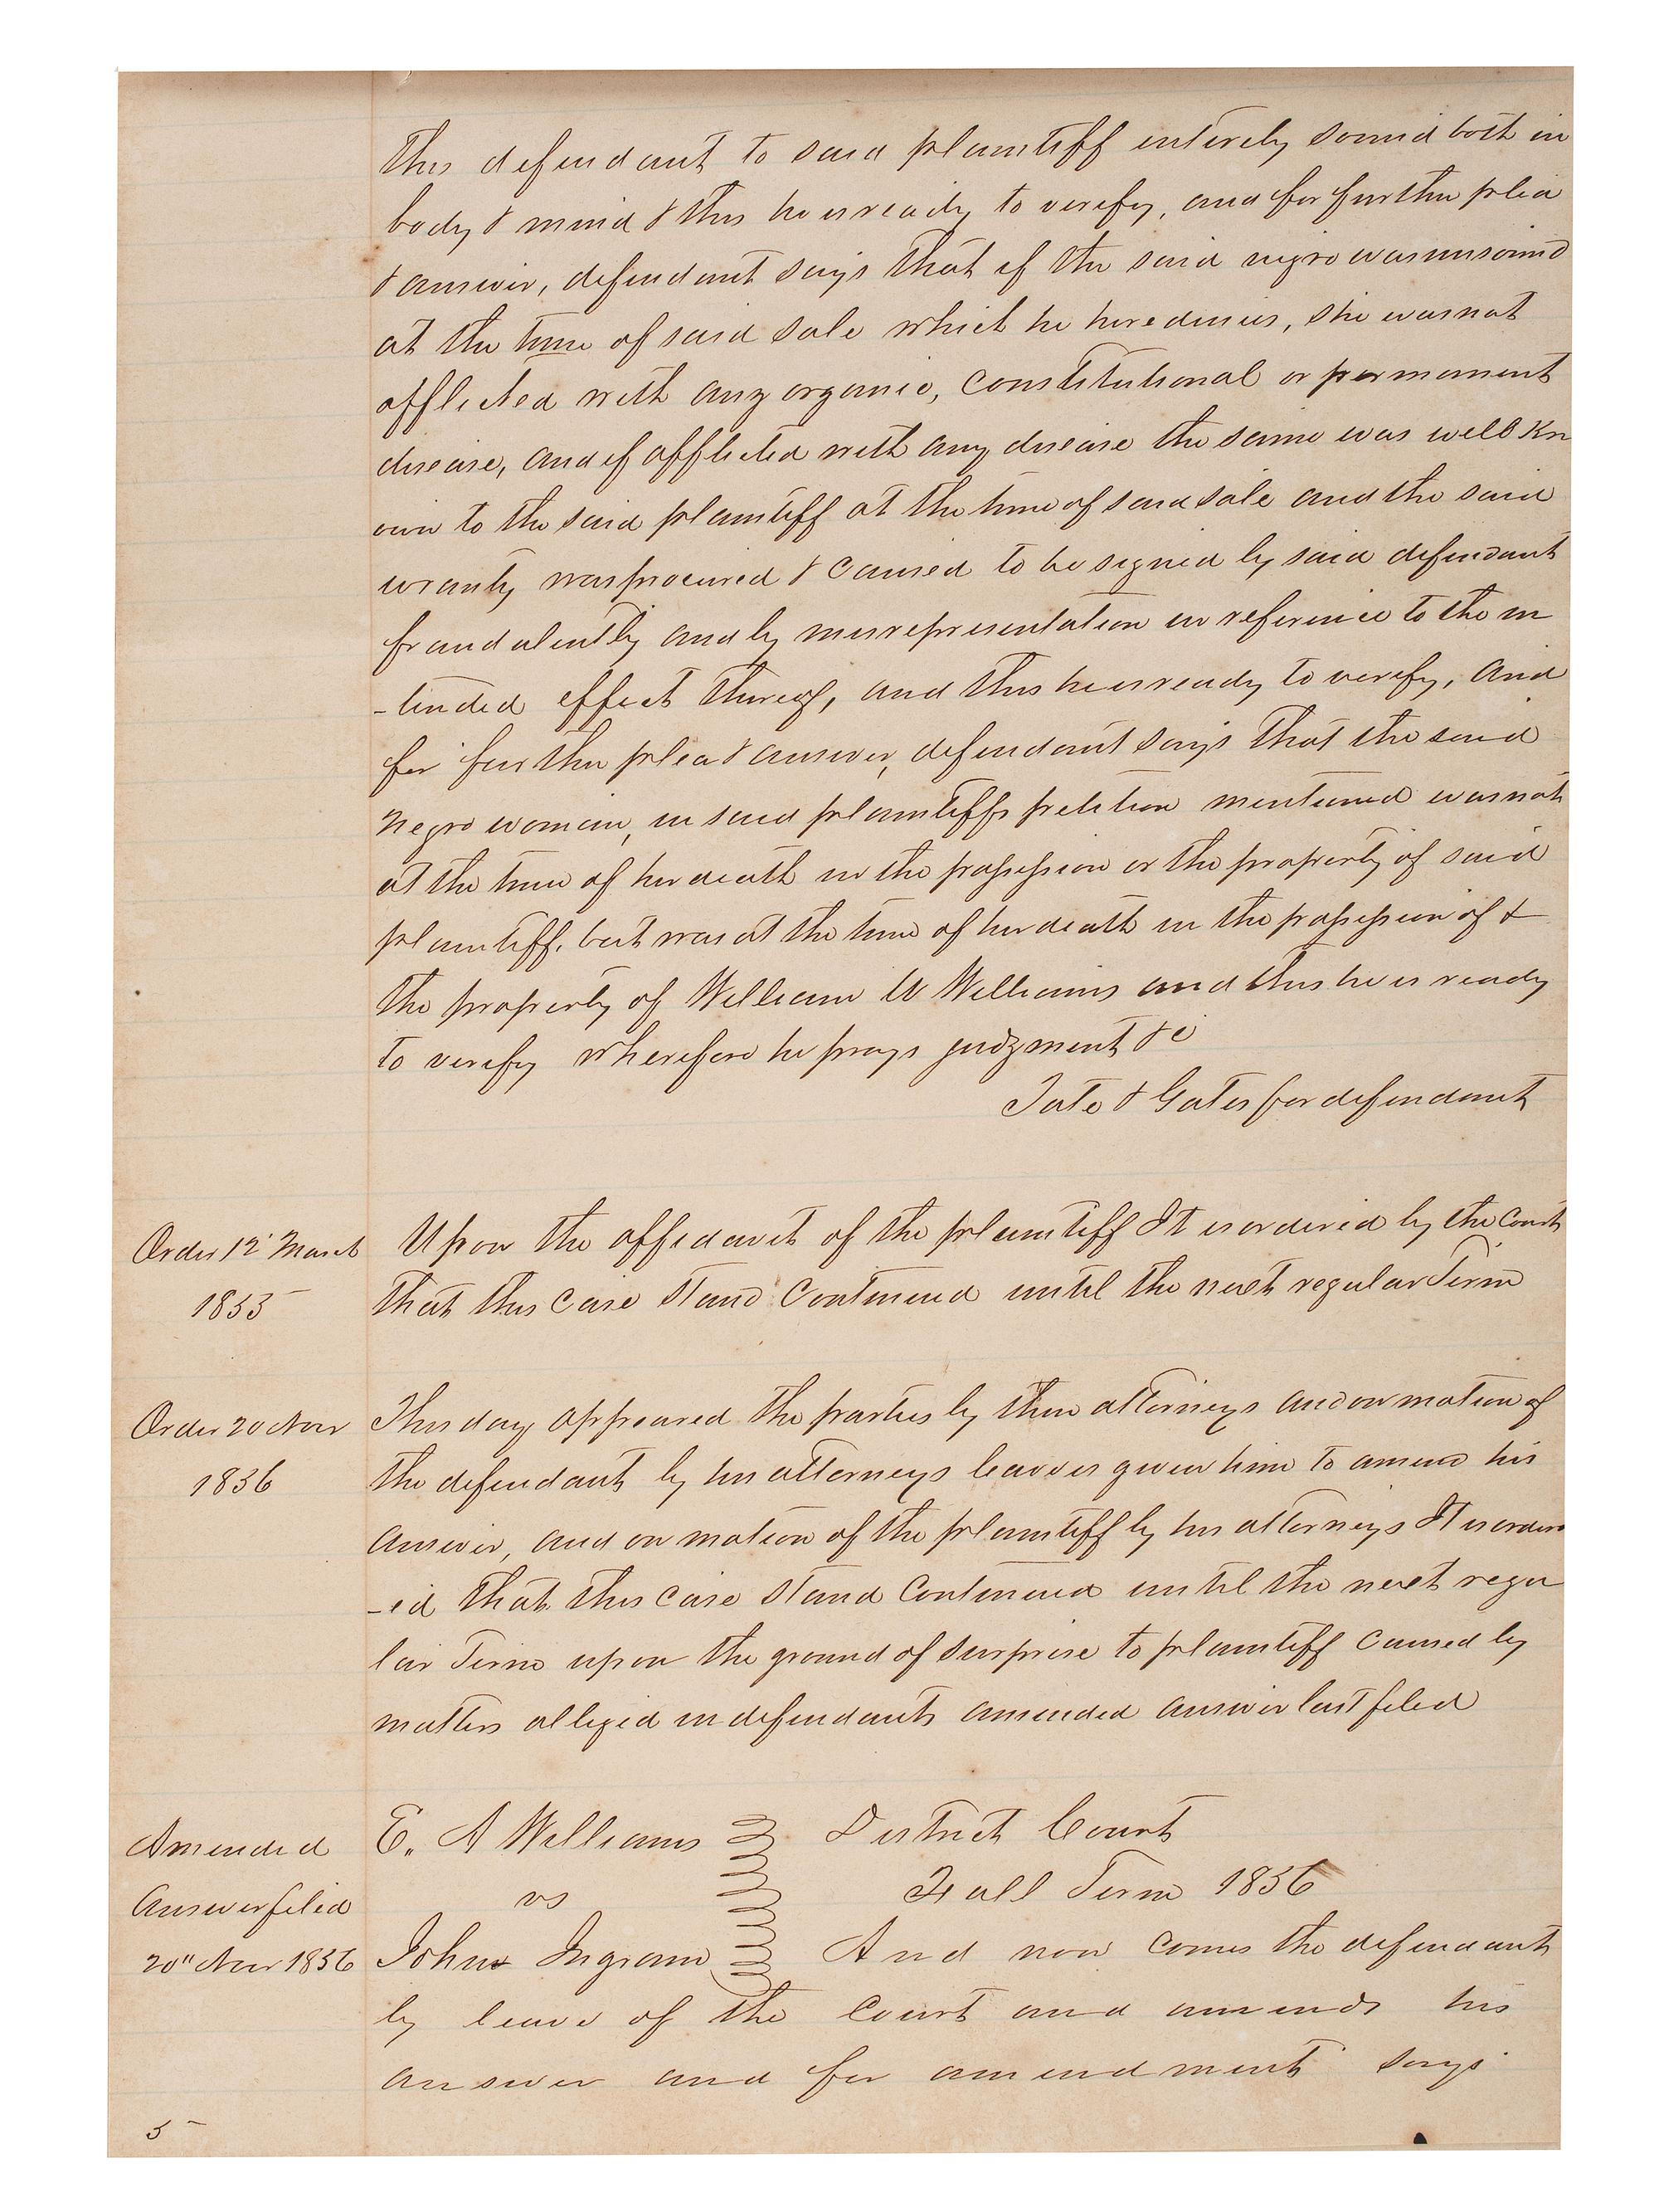 this defendant to said plaintiff entirely sound both in
body & mind & this he is ready to verify, and for further plea
& answer, defendant says that if the said negro was unsound
at the time of said sale which he here denies, she was not
afflicted with any organic, Constitutional or permanent
disease, and if afflicted with any disease the same was well kn
own to the said plaintiff at the time of said sale and the said
wranty was procured & caused to be signed by said defendant
fraudulently and by misrepresentation in reference to the in
-tended effect thereof, and this he is ready to verify, and
for further plea & answer, defendant says that the said
negro woman, in said plaintiffs petition mentioned was not
at the time of her death in the possession or the property of said
plaintiff, but was at the time of her death in the possession of &
the property of William W Williams and this he is ready
to verify wherefore he prays judgment &c
Tate & Gates for defendant
Order 12 March
1855
Upon the affidavit of the plaintiff It is ordered by the Court
that this case stand Continued until the next regular Term
Order 20 Nov
1856
This day appeared the parties by their attorneys and on motion of
the defendant by his attorneys leave is given him to amend his
answer, and on motion of the plaintiff by his attorneys It is order
-ed that this case stand Continued until the next regu
lar Term upon the ground of surprise to plaintiff caused by
matters alleged in defendants amended answer last filed
Amended
answer filed
20" Nov 1856
E. A Williams District Court
vs Fall Term 1856
John Ingram And now comes the defendant
by leave of the Court and amends his
answer and for amendment says
5